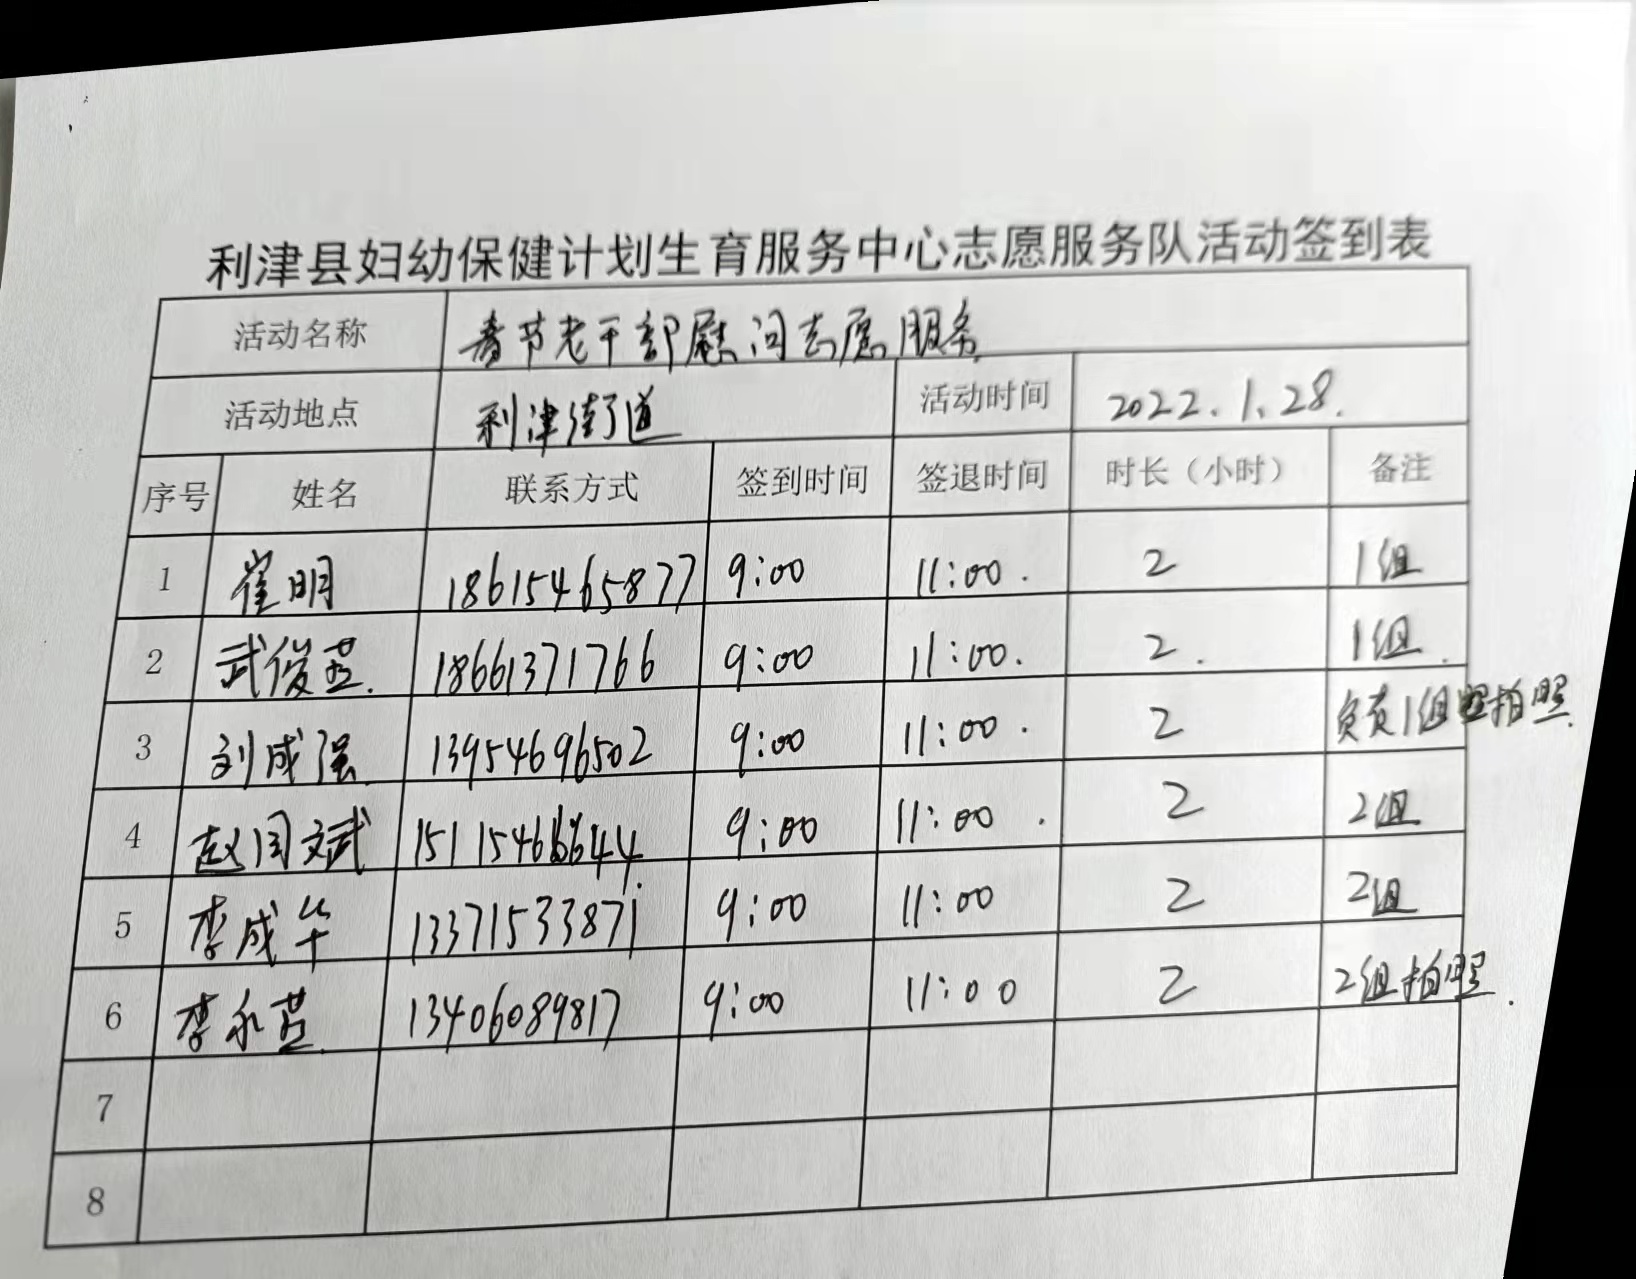 利津县妇幼保健计划生育服务中心志愿服务队活动签到表
活动名称 春节老干部慰问志愿服务
活动地点 利津街道 活动时间 2022.1.28.
序号 姓名 联系方式 签到时间 签退时间 时长（小时） 备注
1 崔明 18615465877 9:00 11:00. 2 1组
2 武俊燕. 18661371766 9:00 11:00. 2. 1组.
3 刘成强 13954696502 9:00 11:00. 2 负责1组拍照.
4 赵国斌 9:00 11:00. 2 2组
5 李成华 13371533871 9:00 11:00 2 2组
6 李永燕. 13406089817 9:00 11:00 2 2组拍照.
7
8